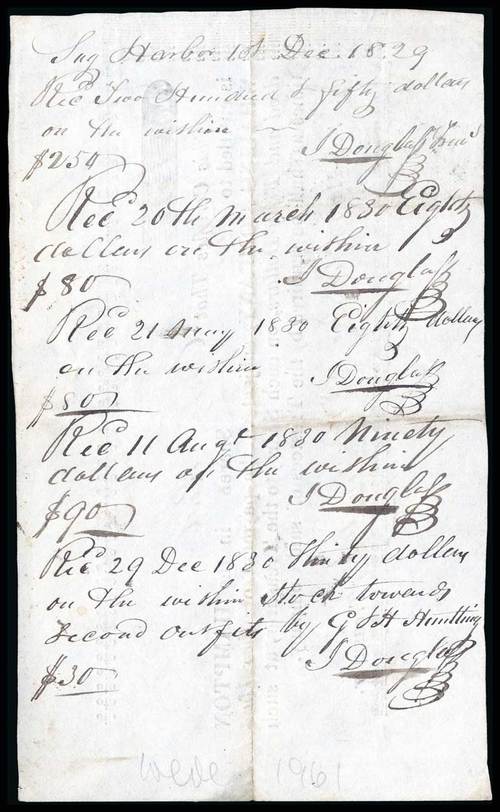 Sag Harbor 1st Dec. 1829
Recd Two Hundred & fifty dollars
on the within
$250 J Douglass
Recd 20th March 1830 Eighty
dollars on the within
$80 J Douglass
Recd 21 May 1830 Eighty dollars
on the within
$80 J Douglass
Recd 11 Augt 1830 Ninety
dollars on the within
$90 J Douglass
Recd 29 Dec 1830 thirty dollars
on the within stock towards
second outfits by G & H Huntting
$30 J Douglass
1961